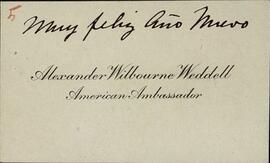 5
Muy feliz Año Nuevo
Alexander Wilbourne Weddell
American Ambassador